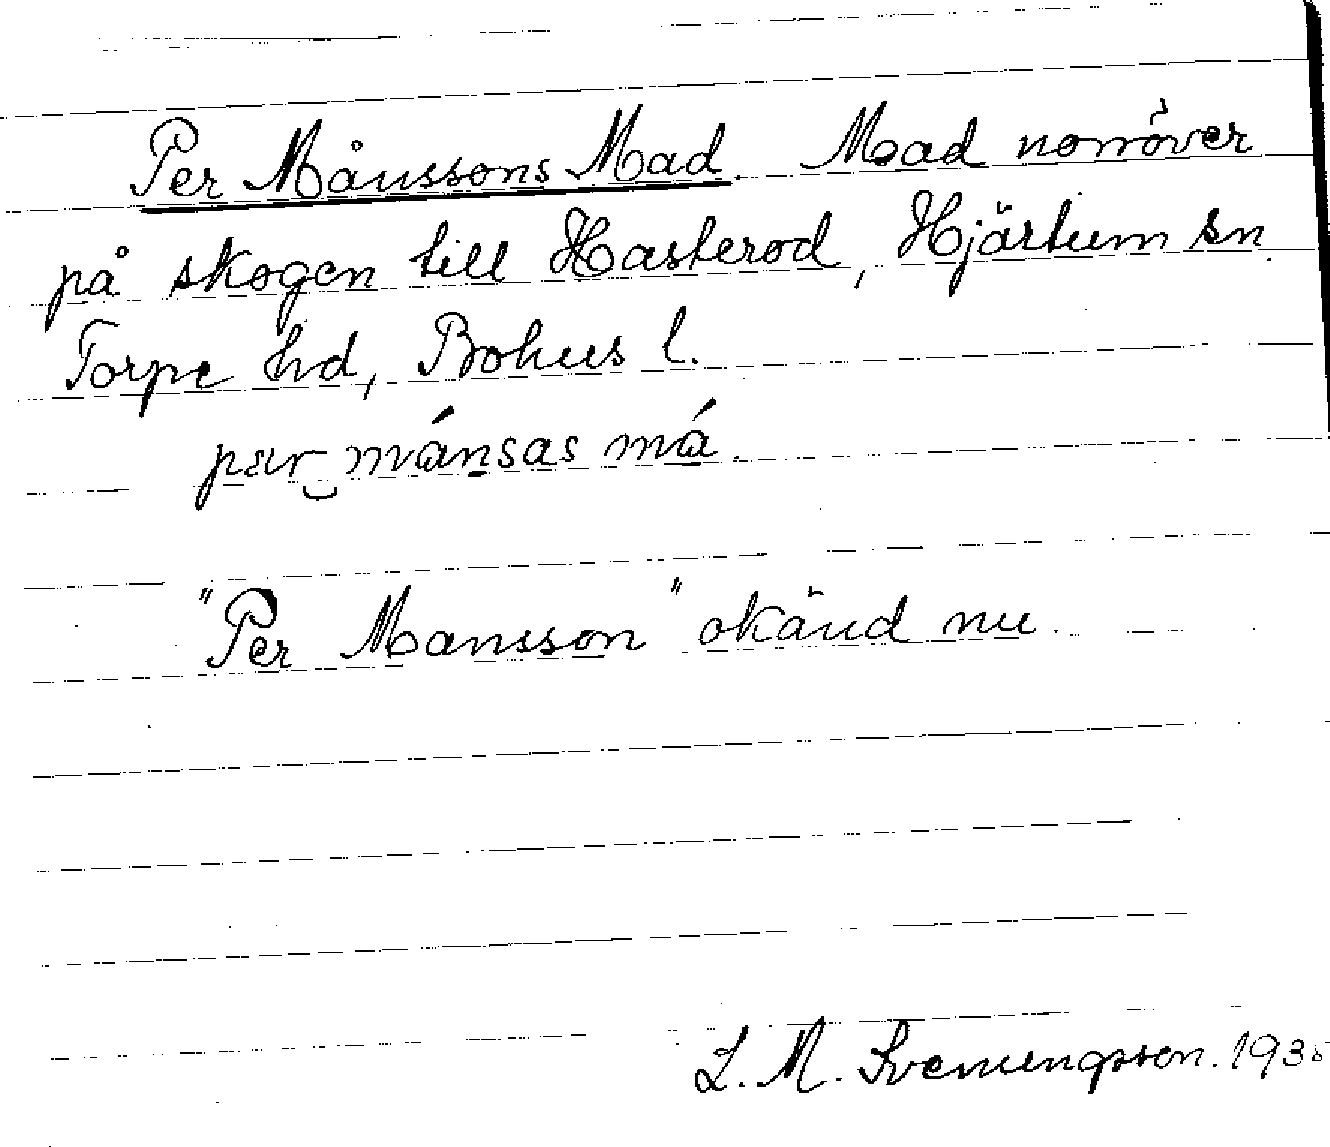 Per Månssons Mad. Mad norröver
på skogen till Hasterod, Hjärtum sn.
Torpe hd, Bohus l.
pær månsas má.
"Per Mansson" okänd nu.
L. M. Svenungsson. 193